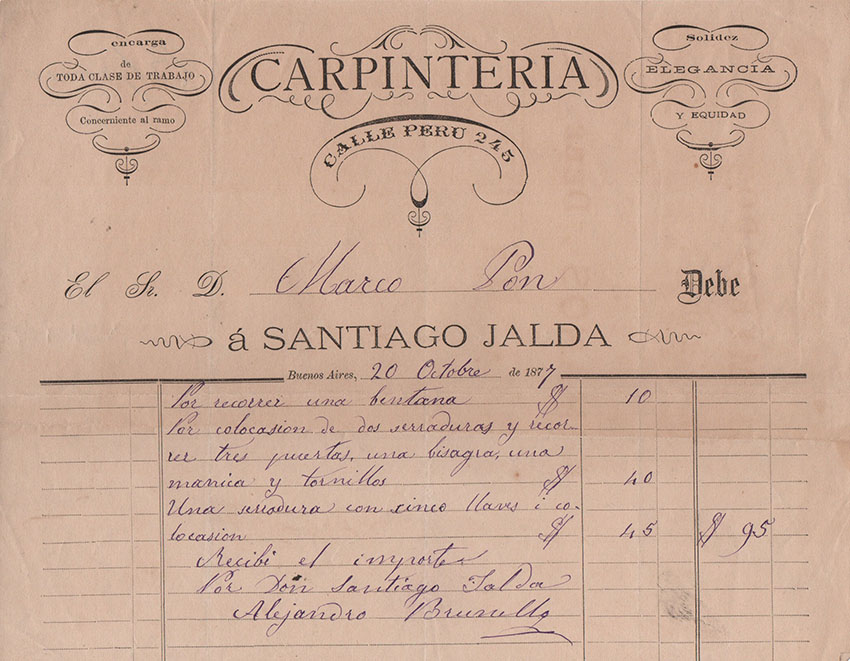 encarga
de
TODA CLASE DE TRABAJO
Concerniente al ramo
CARPINTERIA
CALLE PERU 245
Solidez
ELEGANCIA
Y EQUIDAD
El Sr. D. Marco Pon Debe
á SANTIAGO JALDA
Buenos Aires, 20 Octobre de 1877
Por recorrer una bentana $ 10
Por colocasion de dos serraduras y recor-
rer tres puertas, una bisagra, una
manica y tornillos $ 40
Una serradura con cinco llaves i co-
locasion $ 45 $ 95
Recibi el importe
Por Don Santiago Jalda
Alejandro Brunello